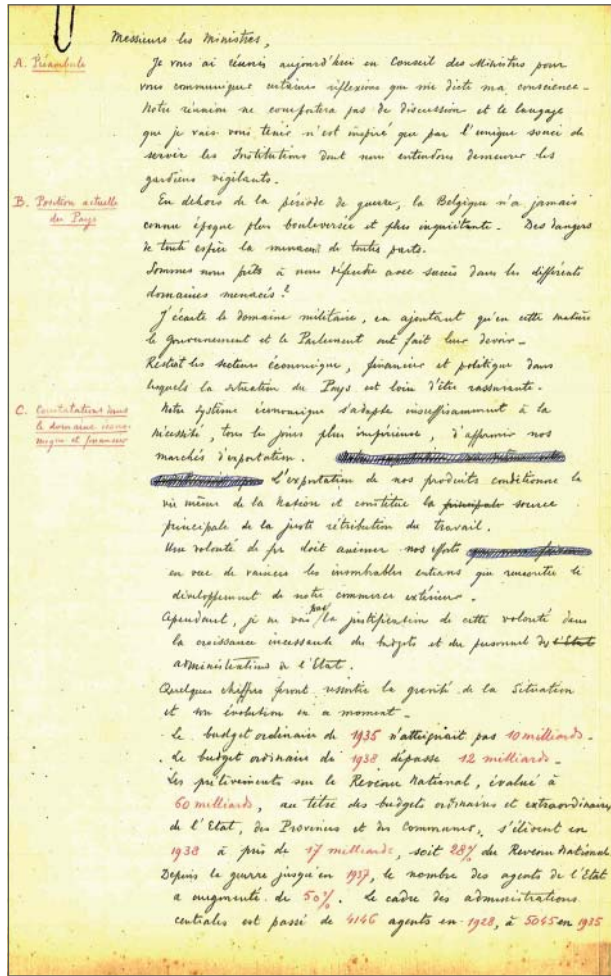 Messieurs les Ministres,
A. Préambule
Je vous ai réunis aujourd'hui en Conseil des Ministres pour
vous communiquer certaines réflexions que me dicte ma conscience.
Notre réunion ne comportera pas de discussion et le langage
que je vais vous tenir n'est inspiré que par l'unique souci de
servir les Institutions dont nous entendons demeurer les
gardiens vigilants.
B. Position actuelle
du Pays
En dehors de la période de guerre, la Belgique n'a jamais
connu époque plus bouleversée et plus inquiétante. Des dangers
de toute espèce la menacent de toutes parts.
Sommes nous prêts à nous défendre avec succès dans les différents
domaines menacés?
J'écarte le domaine militaire, en ajoutant qu'en cette matière
le Gouvernement et le Parlement ont fait leur devoir.
Restent les secteurs économique, financier et politique dans
lesquels la situation du Pays est loin d'être rassurante.
C. Constatations dans
le domaine économique
et financier
Notre système économique s'adapte insuffisamment à la
nécessité, tous les jours plus impérieuse, d'affermir nos
marchés d'exportation.
L'exportation de nos produits conditionne la
vie même de la Nation et constitue la principale source
principale de la juste rétribution du travail.
Une volonté de fer doit animer nos efforts
en vue de vaincre les innombrables entraves que rencontre le
développement de notre commerce extérieur.
Cependant, je ne vois pas la justification de cette volonté dans
la croissance incessante des budgets et du personnel de l'Etat
administrations de l'Etat.
Quelques chiffres feront ressortir la gravité de la Situation
et son évolution en ce moment.
Le budget ordinaire de 1935 n'atteignait pas 10 milliards.
Le budget ordinaire de 1938 dépasse 12 milliards.
Les prélèvements sur le Revenu National, évalué à
60 milliards, au titre des budgets ordinaires et extraordinaires
de l'Etat, des Provinces et des Communes, s'élèvent en
1938 à près de 17 milliards, soit 28% du Revenu National.
Depuis la guerre jusqu'en 1937, le nombre des agents de l'Etat
a augmenté de 50%. Le cadre des administrations
centrales est passé de 4146 agents en 1928, à 5045 en 1935